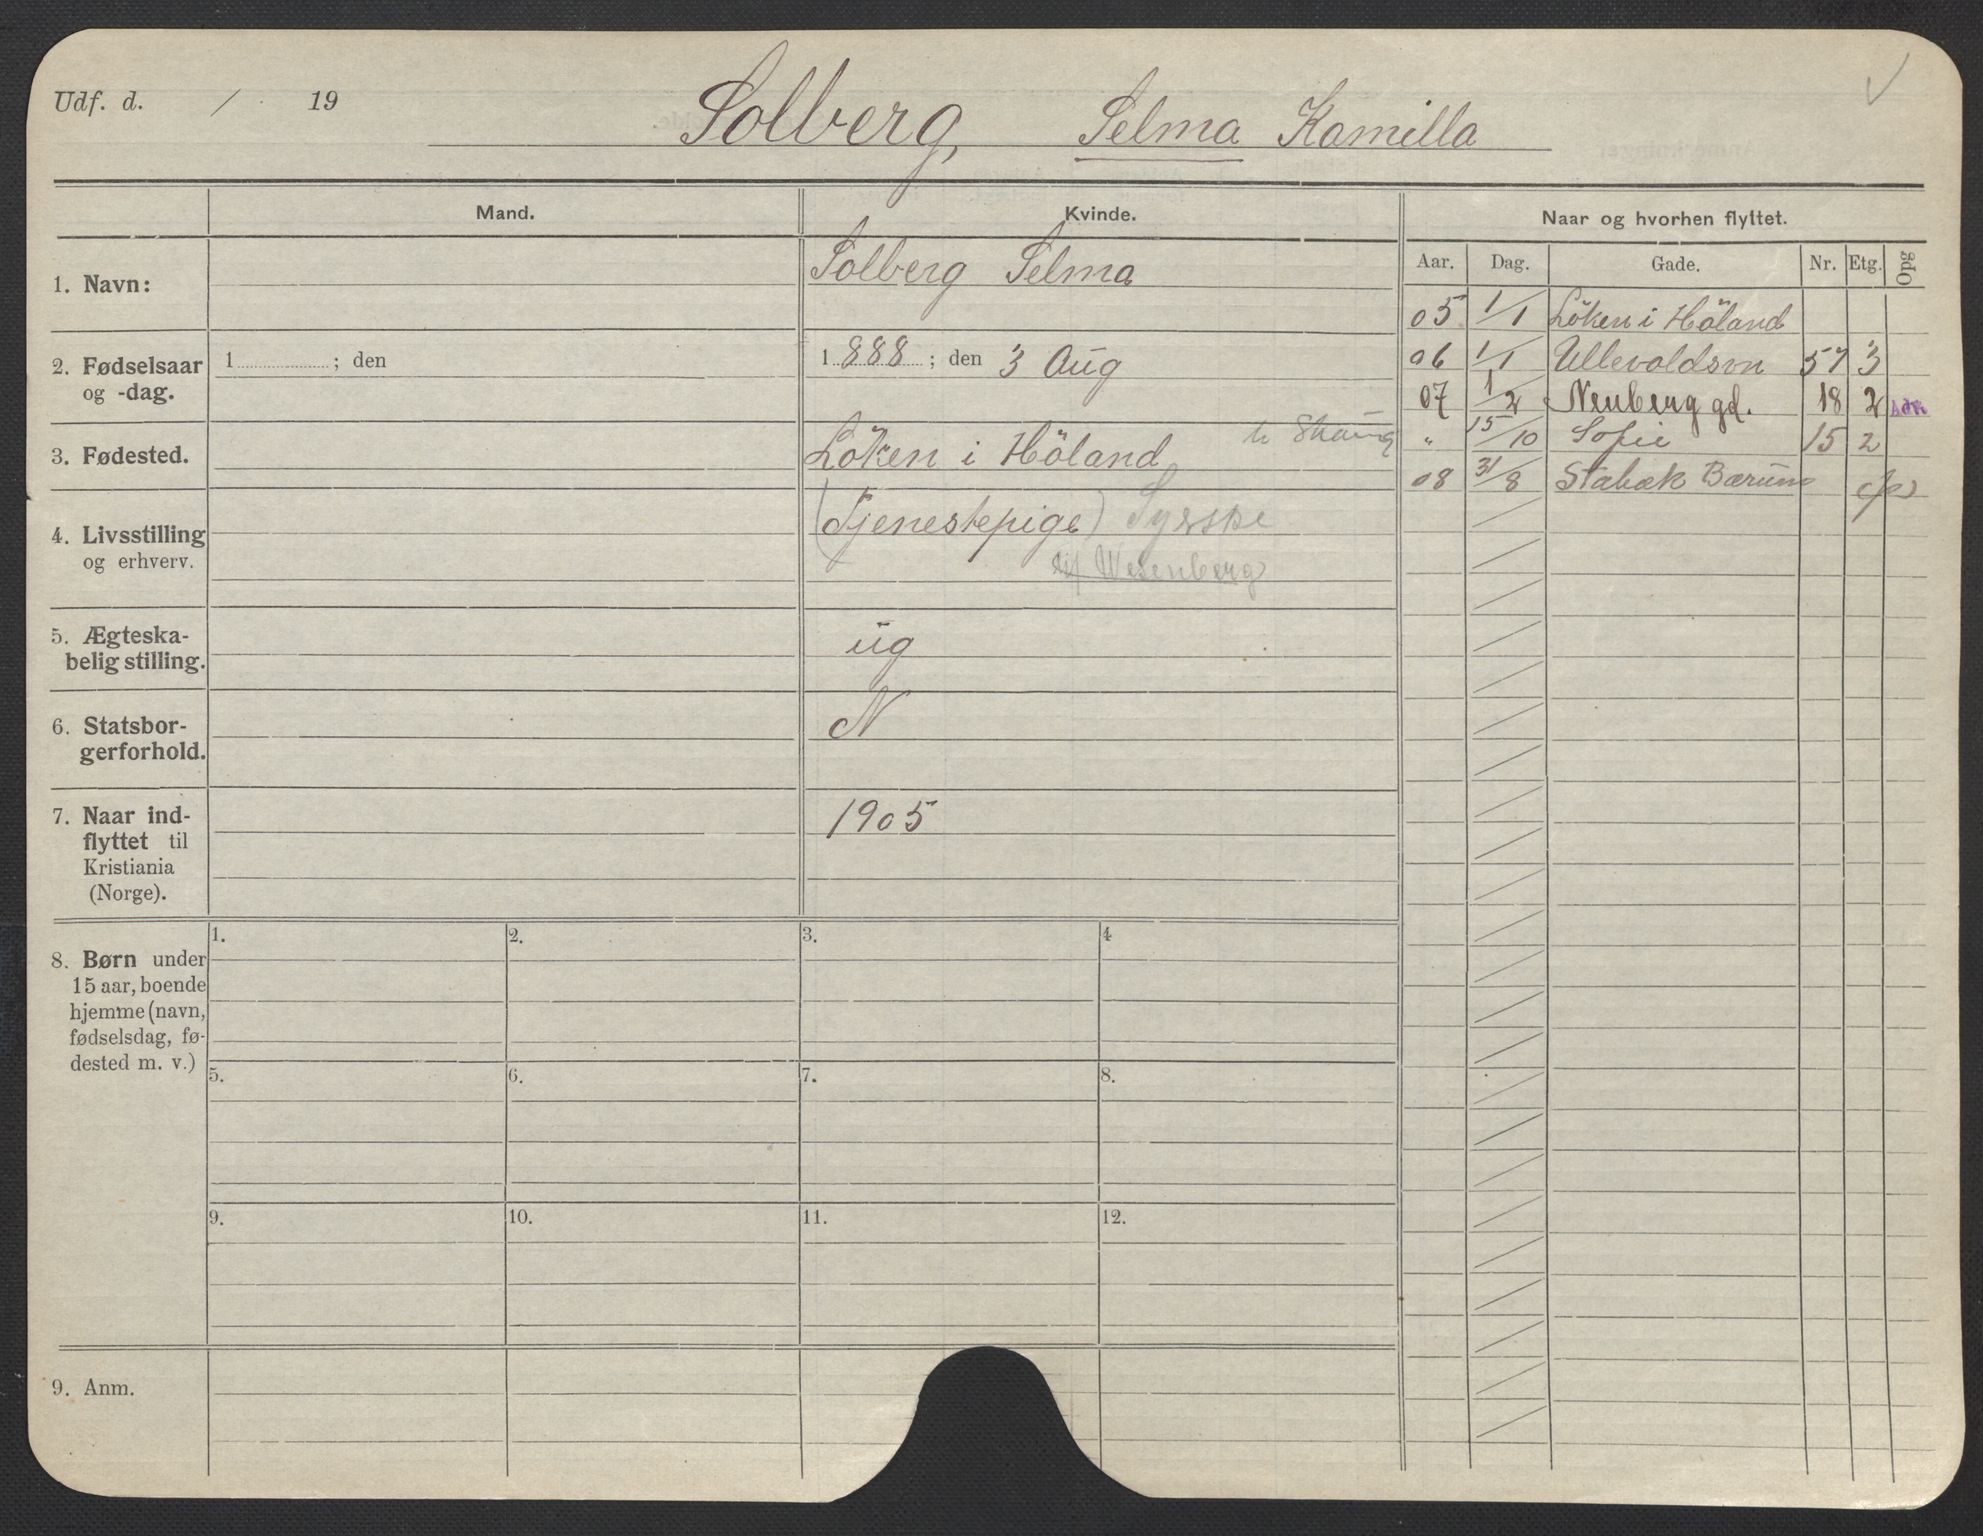 Udf. d. / 19
Solberg, Selma Kamilla
Mand.
Kvinde.
Naar og hvorhen flyttet.
Aar. Dag. Gade. Nr. Etg. Opg
1. Navn:
Solberg Selma
05 1/1 Löken i Höland
2. Fødselsaar
og -dag.
1 ; den
1 888 ; den 3 Aug
06 1/1 Ullevoldsvn 57 3
07 1/2 Neuberg gd. 18 2
" 15/10 Sofie 15 2
08 31/8 Stabæk Bærum
3. Fødested.
Löken i Höland
4. Livsstilling
og erhverv.
(Tjenestepige) Syerske
Wesenberg
5. Ægteska-
belig stilling.
ug
6. Statsbor-
gerforhold.
N
7. Naar ind-
flyttet til
Kristiania
(Norge).
1905
8. Børn under
15 aar, boende
hjemme (navn,
fødselsdag, fø-
dested m. v.)
1. 2. 3. 4
5. 6. 7. 8.
9. 10. 11. 12.
9. Anm.